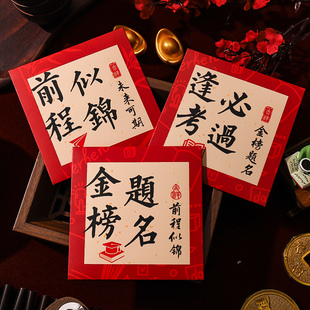 前程
似錦
未来可期
逢考
必過
金榜題名
金榜
題名
前程似錦